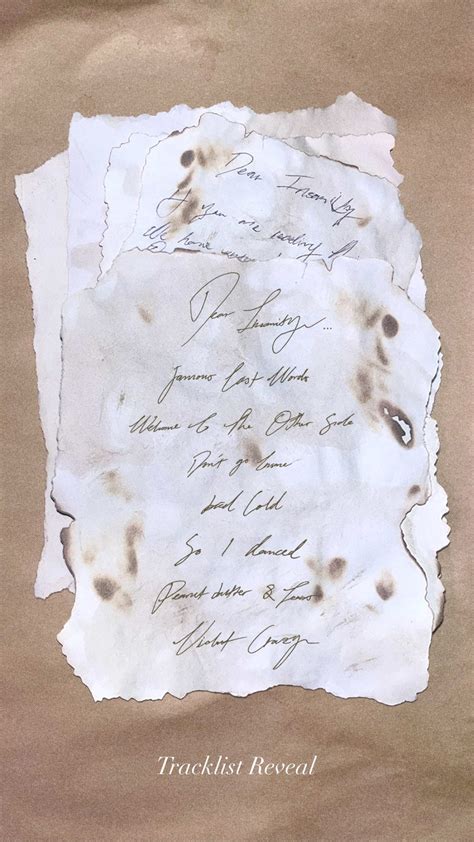 Dear Insanity
If you are reading
We have
Dear Insanity...
Famous Last Words
Welcome to The Other Side
Don't go home
Cold
So I danced
Peanut butter & Tears
Crazy
Tracklist Reveal